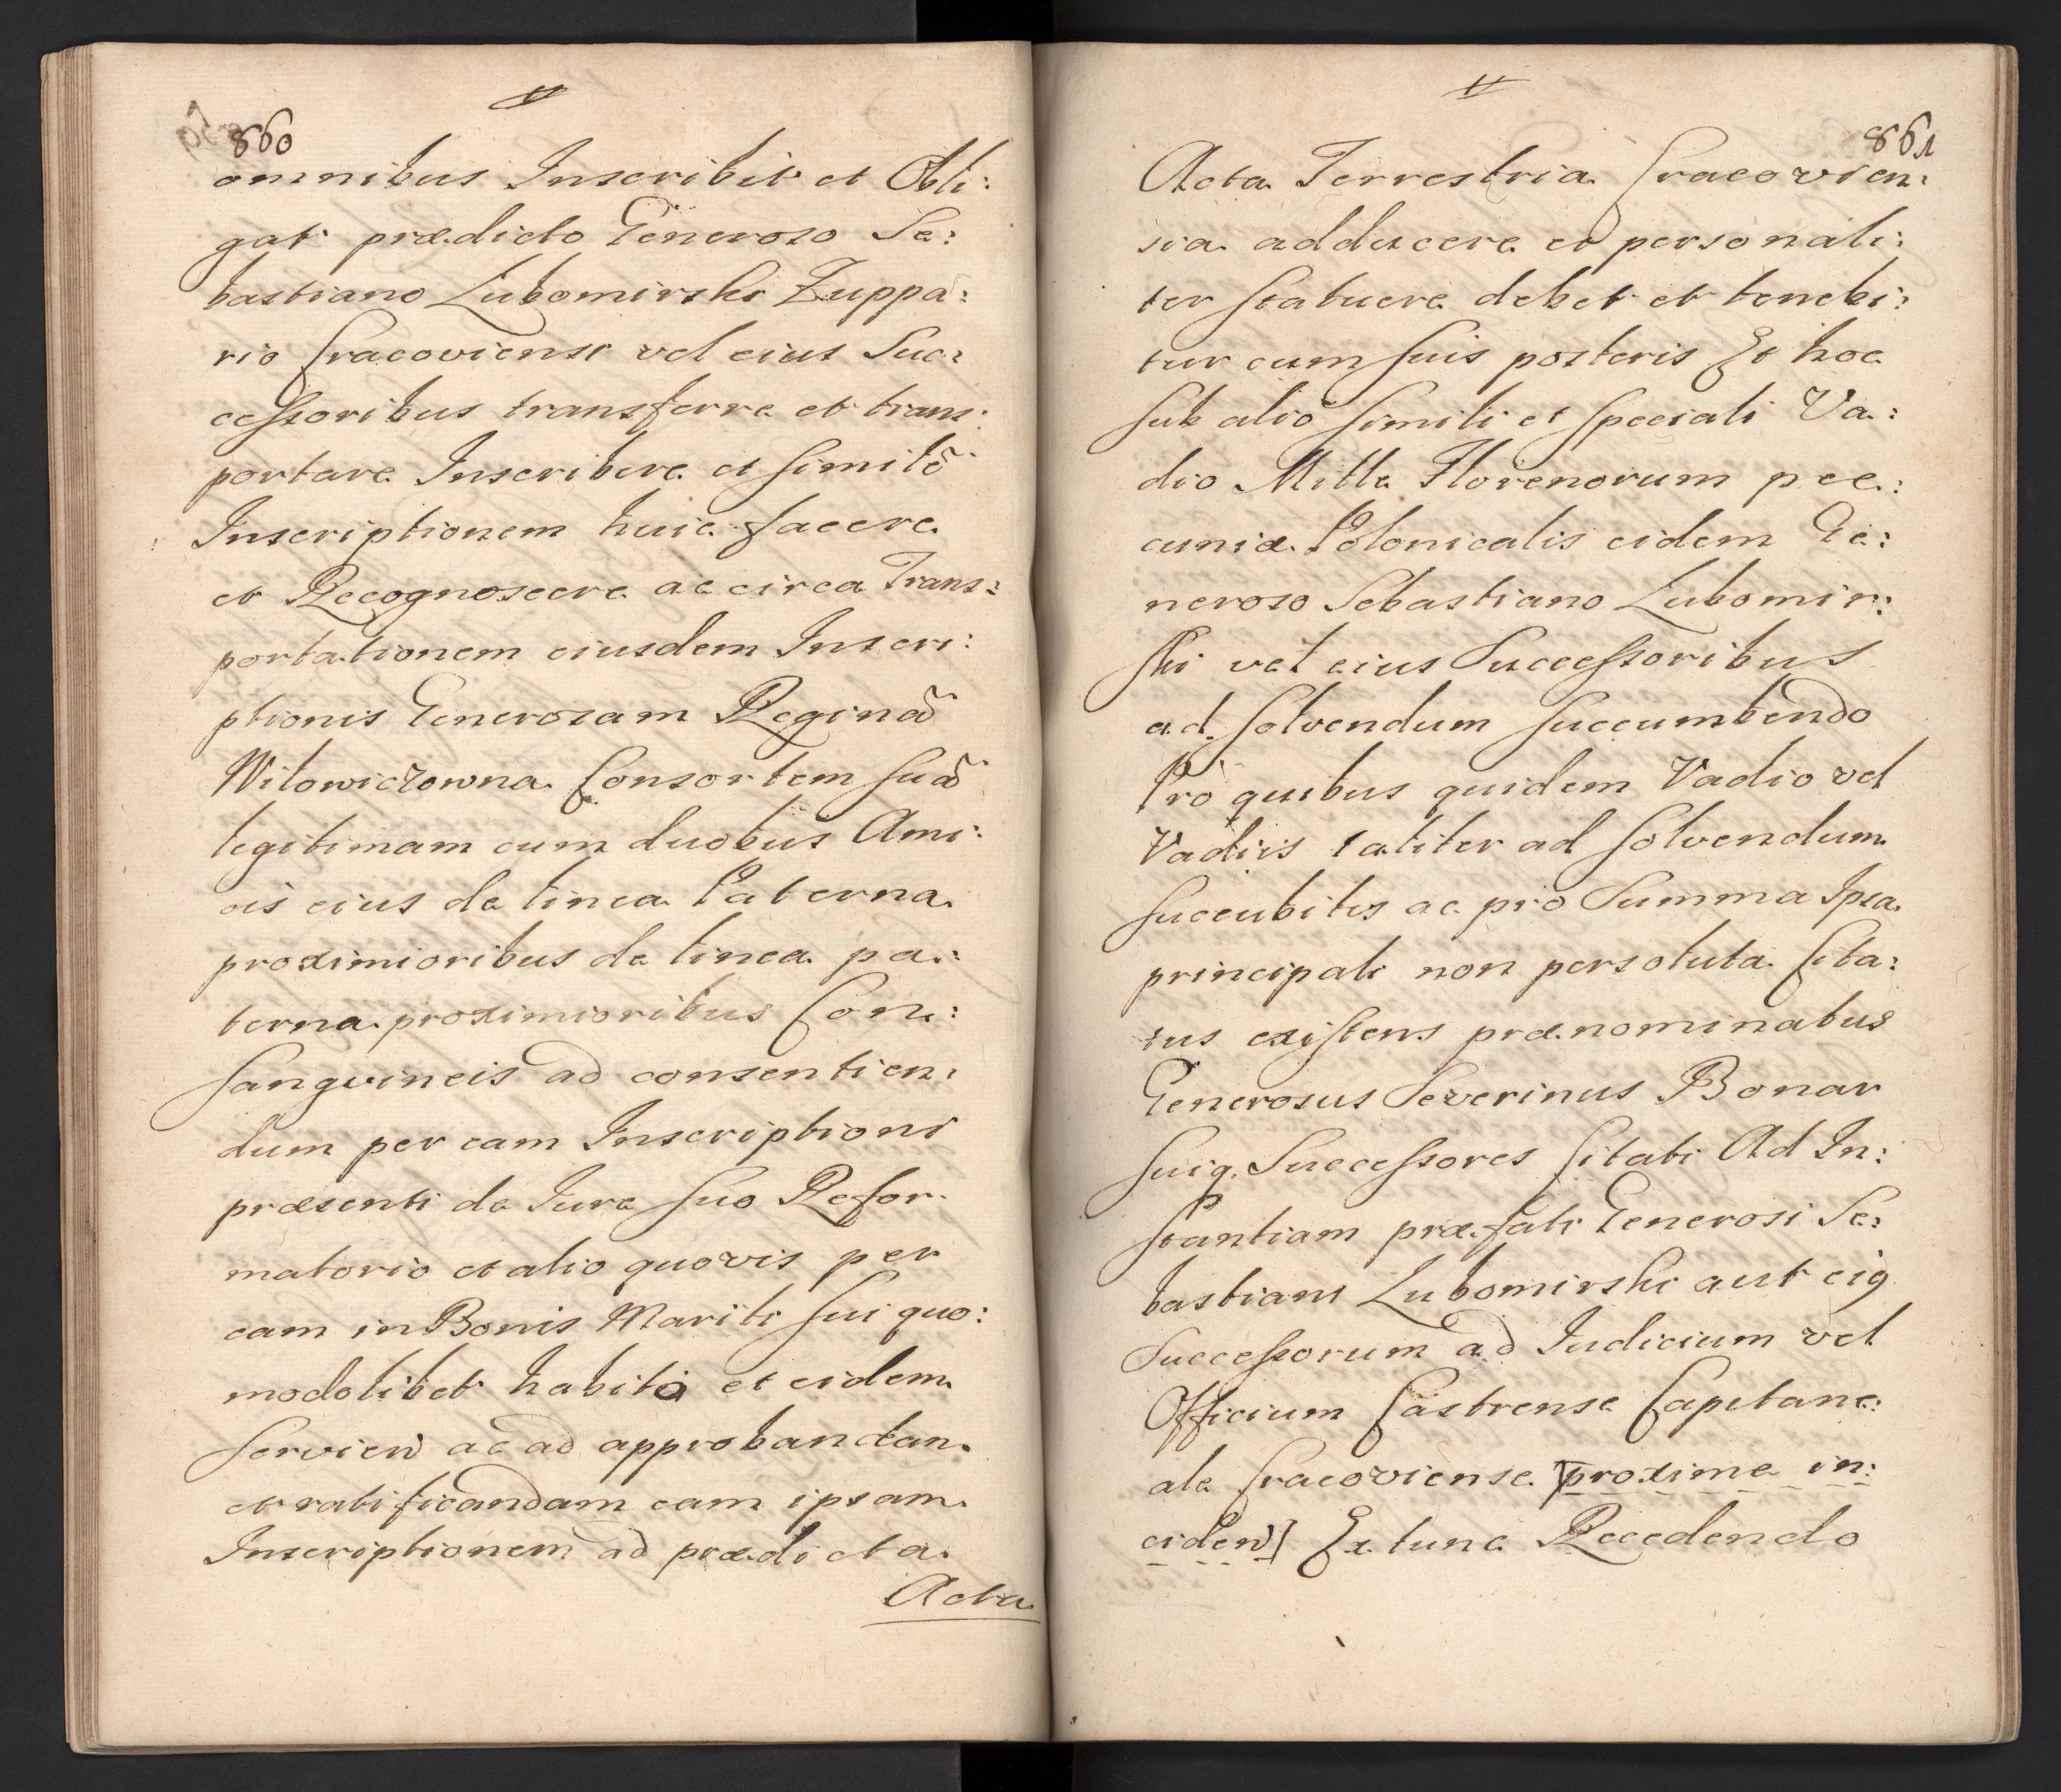 860
omnibus Inscribit et Obli:
gat prædicto Generoso Se:
bastiano Lubomirski Zuppa:
rio Cracoviensi vel eius Suc:
cessoribus transferre et trans:
portare Inscribere et similē
Inscriptionem huic facere
et Recognoscere ac circa Trans:
portationem eiusdem Inscri:
ptionis Generosam Reginā
Witowiczowna Consortem suā
legitimam cum duobus Ami:
cis eius de linea Paterna
proximioribus de linea pa:
terna proximioribus Con:
sangvineis ad consentien:
dum per eam Inscriptioni
præsenti de Iure suo Refor:
matorio et alio quovis per
eam in Bonis Mariti sui quo:
modolibet habito et eidem
servien ac ad approbandam
et ratificandam eam ipsam
Inscriptionem ad prædicta
Acta
861
Acta Terrestria Cracovien:
sia adducere et personali:
ter statuere debet et tenebi:
tur cum suis posteris Et hoc
sub alio simili et speciali Va:
dio Mille Florenorum pec:
cuniæ Polonicalis eidem Ge:
neroso Sebastiano Lubomir:
ski vel eius Successoribus
ad solvendum succumbendo
Pro quibus quidem Vadio vel
Vadiis taliter ad solvendum
succubitis ac pro Summa Ipsa
principali non persoluta Cita:
tus existens prænominatus
Generosus Severinus Bonar
suiq. Successores Citati Ad In:
stantiam præfati Generosi Se:
bastiani Lubomirski aut eig
Successorum ad Iudicium vel
Officium Castrense Capitane:
ale Cracoviense [proxime in:
ciden] Ex tunc Recedendo